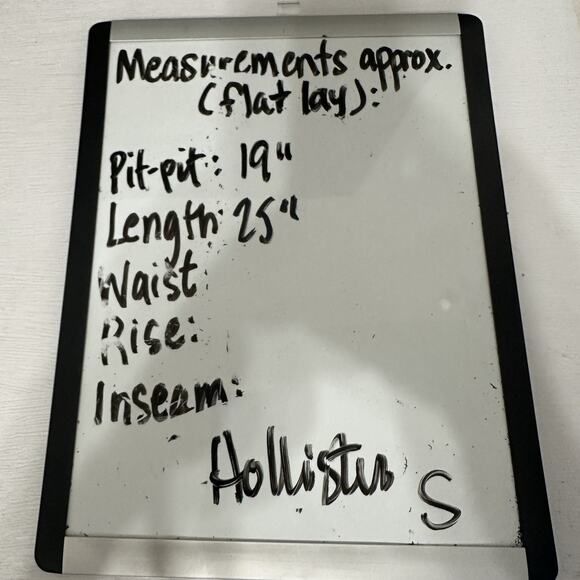 Measurements approx.
(flat lay):
Pit-pit: 19"
Length: 25"
Waist
Rise:
Inseam:
Hollister S